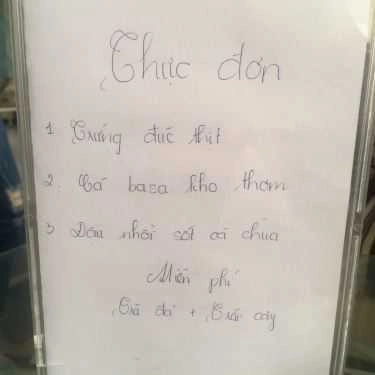 Thực đơn
1. Trứng đúc thịt
2. Cá basa kho thơm
3 Đậu nhồi sốt cà chua
Miễn phí
Trà đá + Trái cây